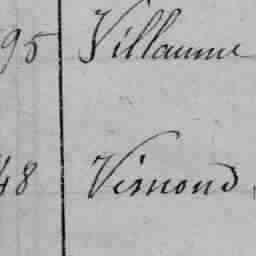 95 Villaume
48 Vismond